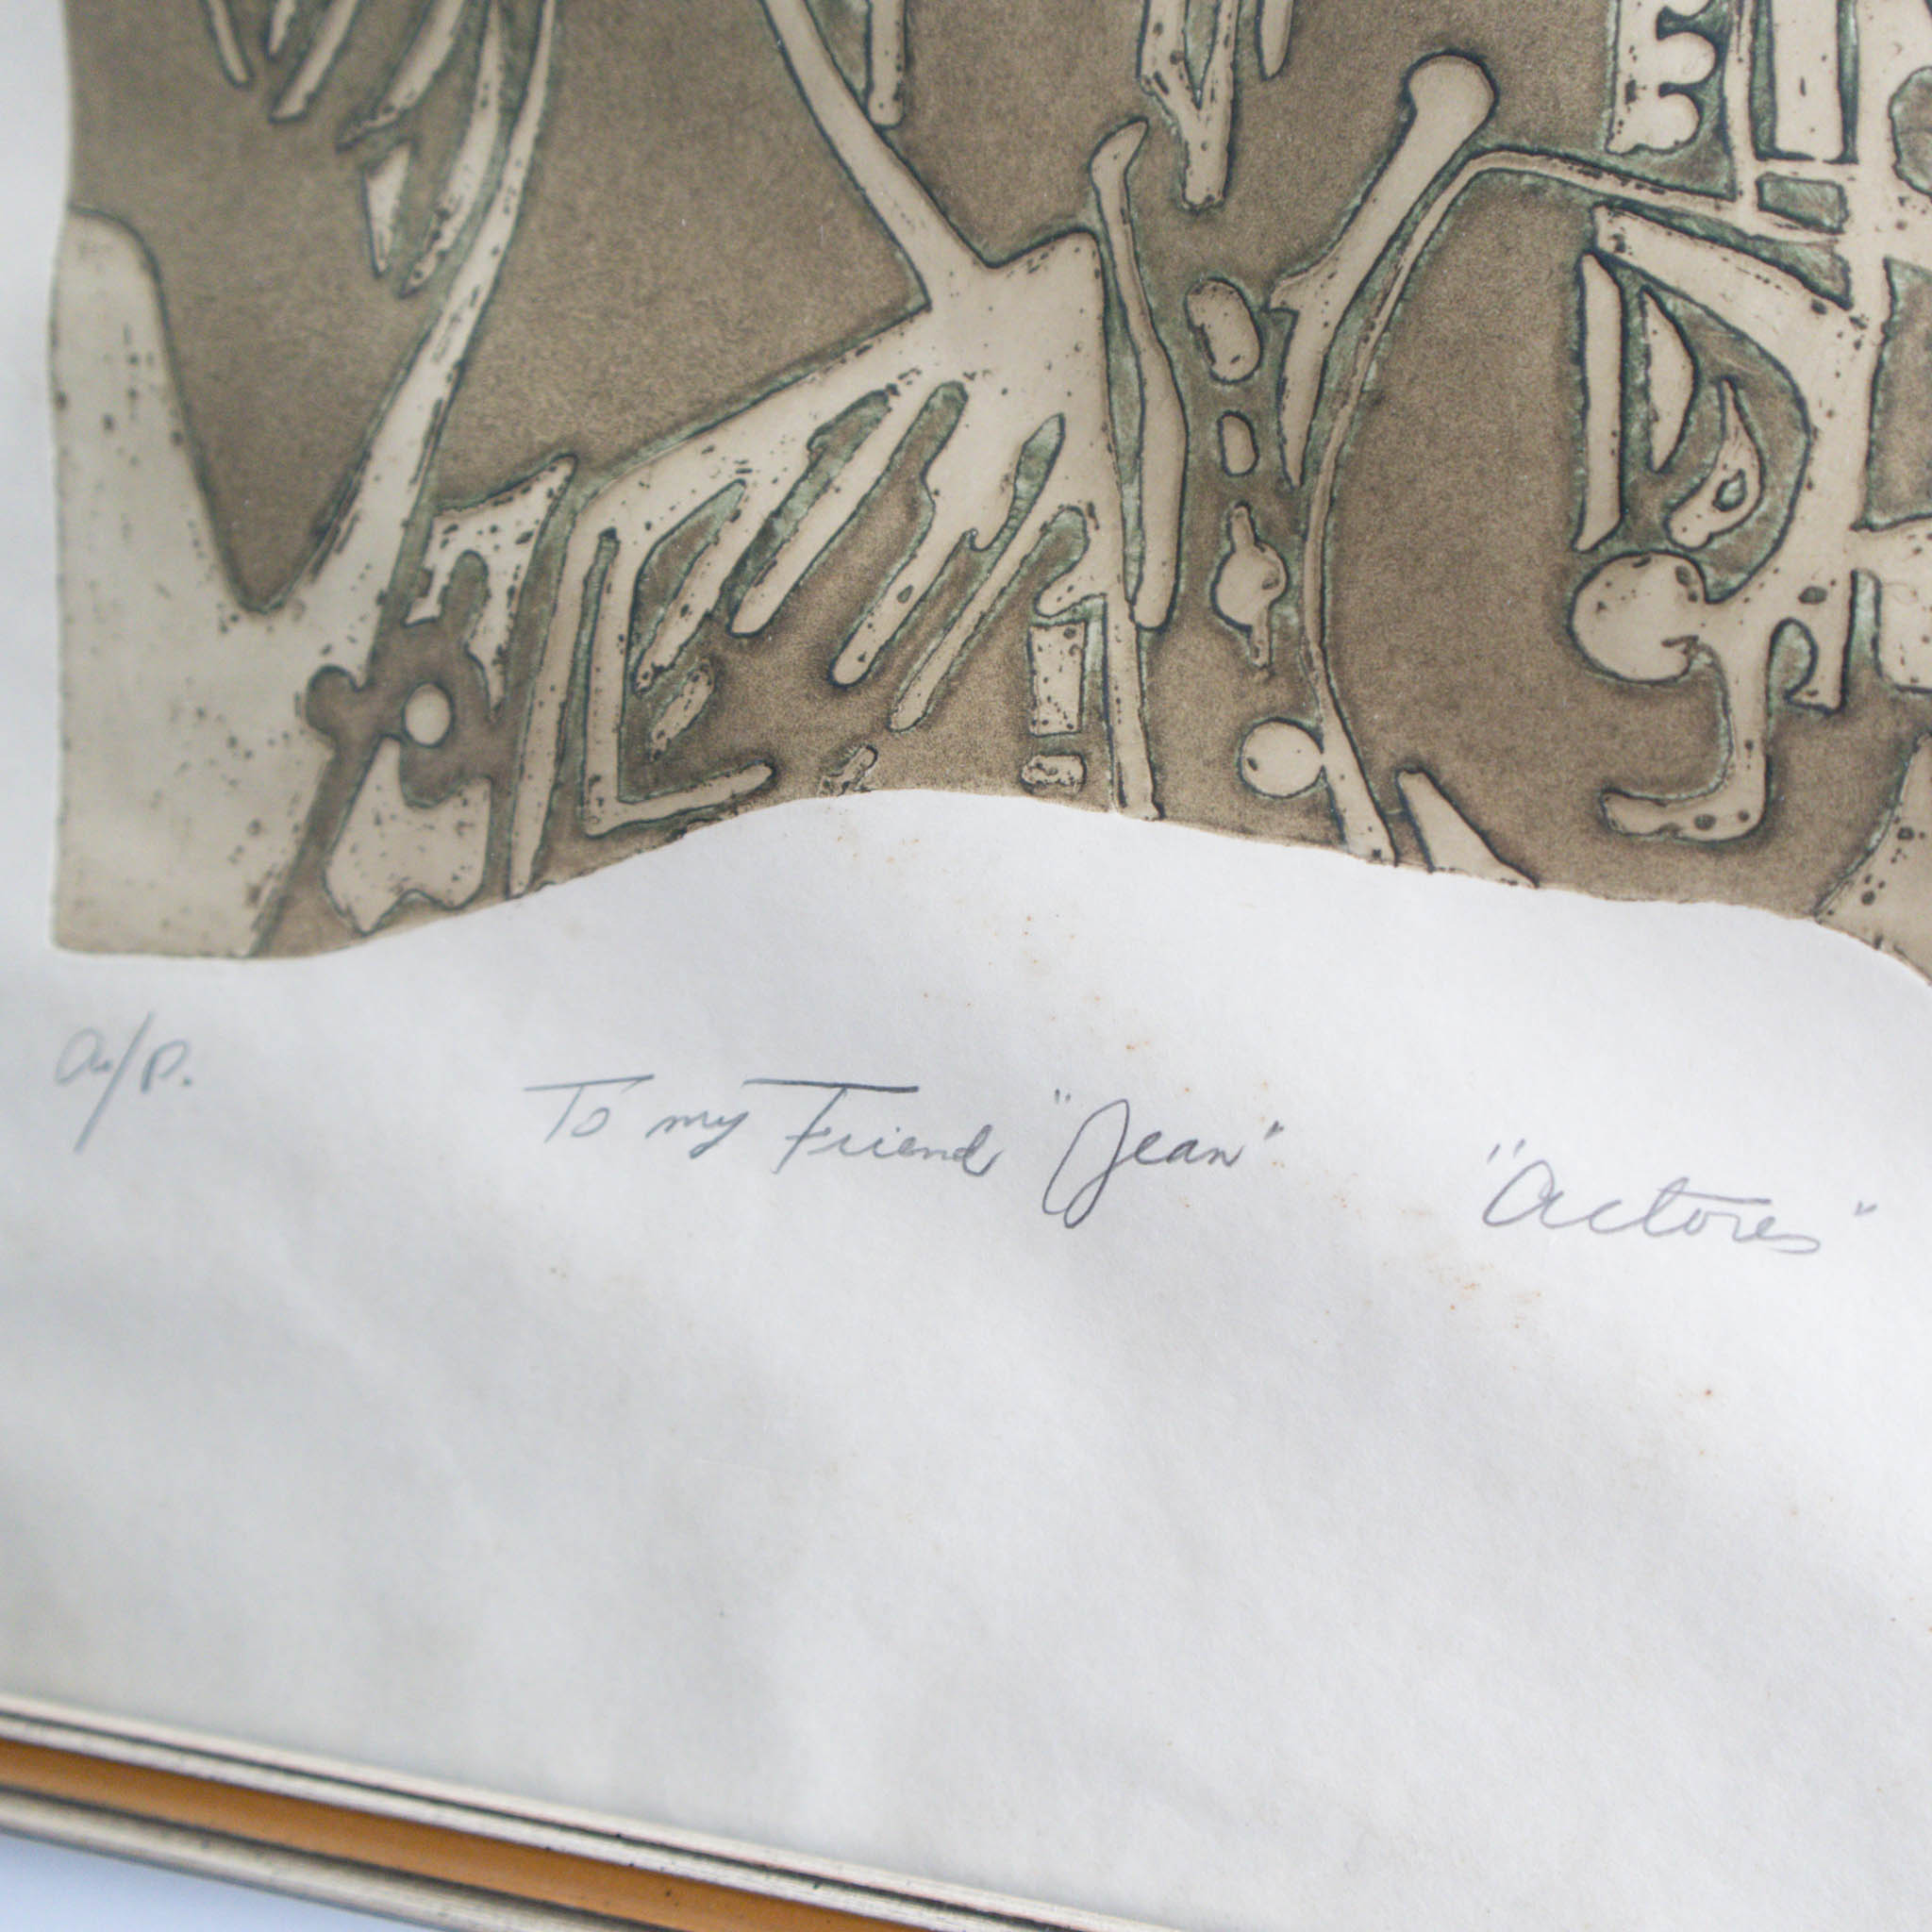 a/p. To my Friend "Jean" "Actores"